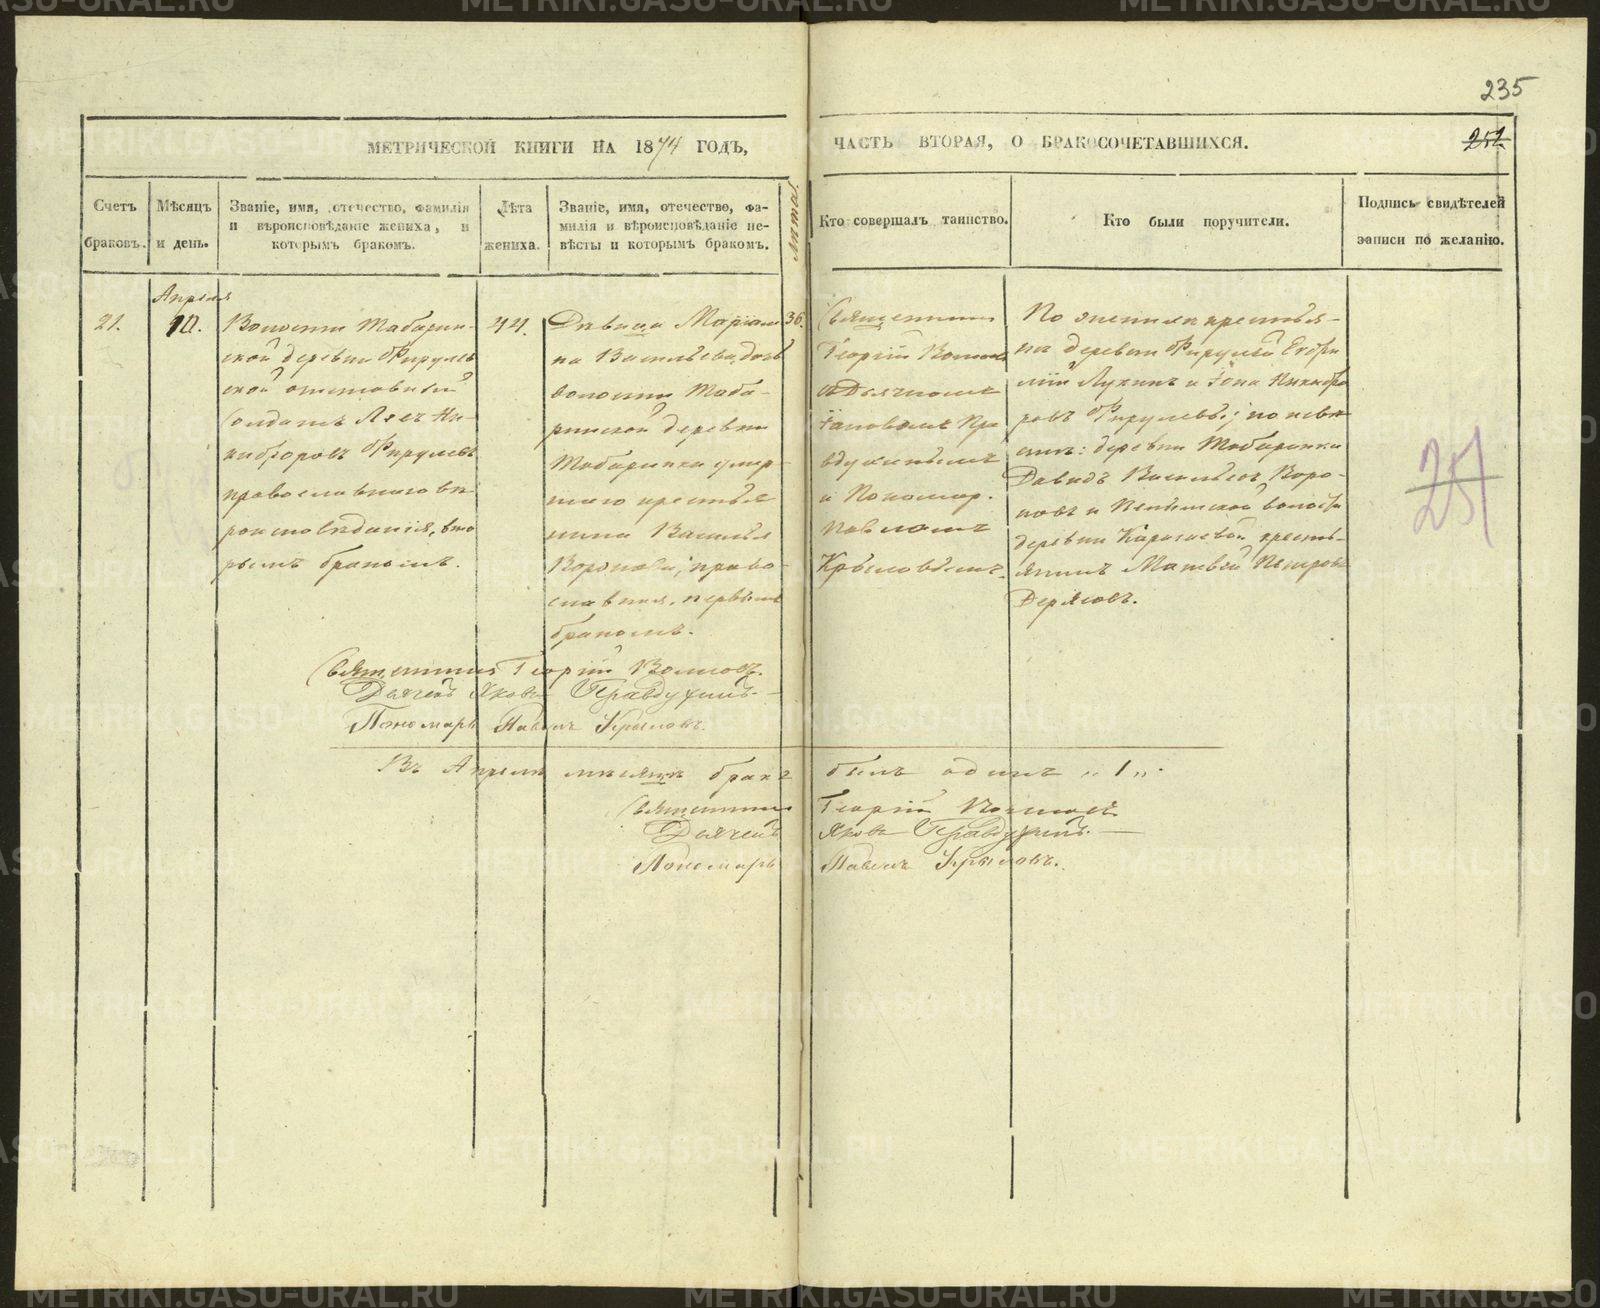 235
МЕТРИЧЕСКОЙ КНИГИ НА 1874 ГОДЪ,
ЧАСТЬ ВТОРАЯ, О БРАКОСОЧЕТАВШИХСЯ.
251
Счетъ браковъ.
Мѣсяцъ и день.
Званіе, имя, отечество, фамилія
и вѣроисповѣданіе жениха, и
которымъ бракомъ.
Лѣта жениха.
Званіе, имя, отечество, фа-
милія и вѣроисповѣданіе не-
вѣсты и которымъ бракомъ.
Кто совершалъ таинство.
Кто были поручители.
Подпись свидѣтелей
записи по желанію.
21.
Апрѣля
10.
Волости Табарин-
ской деревни Фирулев
ской отставной
Солдатъ Ни-
кифоровъ Фирулевъ
православнаго вѣ-
роисповѣданія, вто
рымъ бракомъ.
44.
Дѣвица Маріам
на Васильева, дочь
волости Таба-
ринской деревни
Табаринки умер-
шаго крестья
нина Василья
Воронова, право-
славная, первымъ
бракомъ.
36.
Священник
Георгій
Дьячкомъ
Іаковомъ Пра
вдухинымъ
и Пономар.
Павломъ
Крыловымъ.
По женихѣ крестья-
не деревни Фирулевой
Лукинъ и Іона Никифо
ровъ Фирулевы; по невѣ
стѣ: деревни Табаринки
Давидъ Васильевъ Воро-
новъ и Пелымской волости
деревни кресть-
янинъ Матвѣй Петровъ
Дерябовъ.
251
Священникъ Георгій
Дьячекъ Яковъ Правдухинъ.
Пономарь Павелъ Крыловъ.
Въ Апрѣлѣ мѣсяцѣ бракъ былъ одинъ „1„.
Священникъ Георгій
Дьячекъ Яковъ Правдухинъ.
Пономарь Павелъ Крыловъ.
METRIKI.GASO-URAL.RU